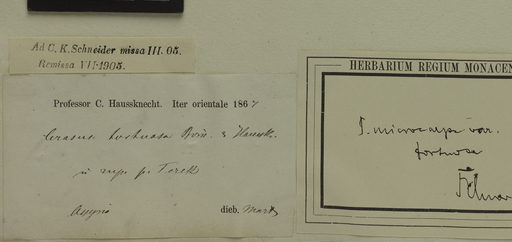 Ad C. K. Schneider missa III. 05.
Remissa VII 1905.
Professor C. Haussknecht. Iter orientale 1867
Cerasus tortuosa Boiss. & Hausskn.
in rup. pr Terek
Assyria dieb. Martis
HERBARIUM REGIUM MONACEN
P. microcarpa var.
tortuosa